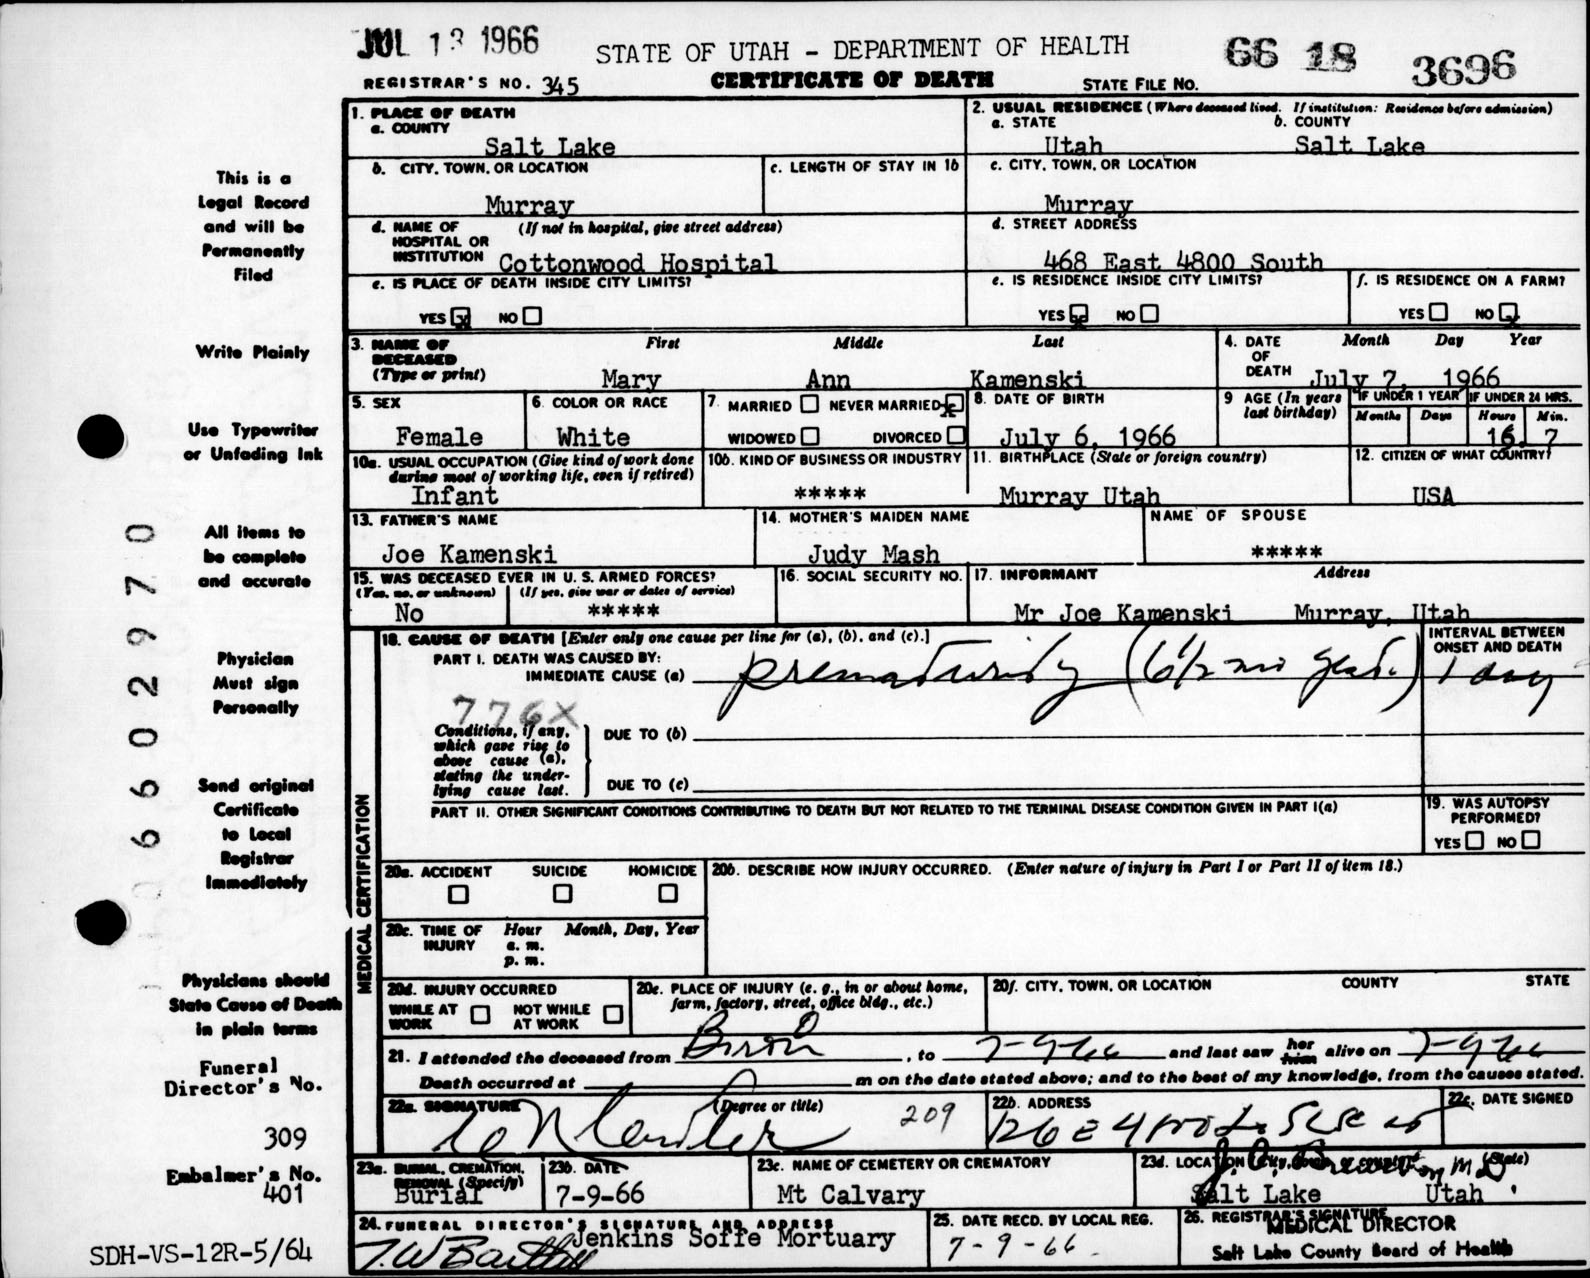 JUL 13 1966
STATE OF UTAH - DEPARTMENT OF HEALTH
66 18 3696
REGISTRAR'S NO. 345
CERTIFICATE OF DEATH
STATE FILE NO.
This is a
Legal Record
and will be
Permanently
Filed
Write Plainly
Use Typewriter
or Unfading Ink
All items to
be complete
and accurate
Physician
Must sign
Personally
Send original
Certificate
to Local
Registrar
Immediately
Physicians should
State Cause of Death
in plain terms
Funeral
Director's No.
309
Embalmer's No.
401
SDH-VS-12R-5/64
0 6 6 0 2 9 7 0
1. PLACE OF DEATH
a. COUNTY
Salt Lake
2. USUAL RESIDENCE (Where deceased lived. If institution: Residence before admission)
a. STATE b. COUNTY
Utah Salt Lake
b. CITY, TOWN, OR LOCATION
Murray
c. LENGTH OF STAY IN 1b
c. CITY, TOWN, OR LOCATION
Murray
d. NAME OF (If not in hospital, give street address)
HOSPITAL OR
INSTITUTION Cottonwood Hospital
d. STREET ADDRESS
468 East 4800 South
e. IS PLACE OF DEATH INSIDE CITY LIMITS?
YES x NO
e. IS RESIDENCE INSIDE CITY LIMITS?
YES x NO
f. IS RESIDENCE ON A FARM?
YES NO x
3. NAME OF First Middle Last
DECEASED
(Type or print) Mary Ann Kamenski
4. DATE Month Day Year
OF
DEATH July 7, 1966
5. SEX
Female
6. COLOR OR RACE
White
7. MARRIED NEVER MARRIED x
WIDOWED DIVORCED
8. DATE OF BIRTH
July 6, 1966
9 AGE (In years
last birthday)
IF UNDER 1 YEAR IF UNDER 24 HRS.
Months Days Hours Min.
16. 7
10a. USUAL OCCUPATION (Give kind of work done
during most of working life, even if retired)
Infant
10b. KIND OF BUSINESS OR INDUSTRY
*****
11. BIRTHPLACE (State or foreign country)
Murray Utah
12. CITIZEN OF WHAT COUNTRY?
USA
13. FATHER'S NAME
Joe Kamenski
14. MOTHER'S MAIDEN NAME
Judy Mash
NAME OF SPOUSE
*****
15. WAS DECEASED EVER IN U. S. ARMED FORCES?
(Yes, no, or unknown) (If yes, give war or dates of service)
No *****
16. SOCIAL SECURITY NO.
17. INFORMANT Address
Mr Joe Kamenski Murray, Utah
MEDICAL CERTIFICATION
18. CAUSE OF DEATH [Enter only one cause per line for (a), (b), and (c).]
PART I. DEATH WAS CAUSED BY:
IMMEDIATE CAUSE (a) prematurity (6 1/2 mo gest.)
INTERVAL BETWEEN
ONSET AND DEATH
1 day
776X
Conditions, if any,
which gave rise to
above cause (a),
stating the under-
lying cause last.
DUE TO (b)
DUE TO (c)
PART II. OTHER SIGNIFICANT CONDITIONS CONTRIBUTING TO DEATH BUT NOT RELATED TO THE TERMINAL DISEASE CONDITION GIVEN IN PART I(a)
19. WAS AUTOPSY
PERFORMED?
YES NO
20a. ACCIDENT SUICIDE HOMICIDE
20b. DESCRIBE HOW INJURY OCCURRED. (Enter nature of injury in Part I or Part II of item 18.)
20c. TIME OF Hour Month, Day, Year
INJURY a. m.
p. m.
20d. INJURY OCCURRED
WHILE AT NOT WHILE
WORK AT WORK
20e. PLACE OF INJURY (e. g., in or about home,
farm, factory, street, office bldg., etc.)
20f. CITY, TOWN, OR LOCATION COUNTY STATE
21. I attended the deceased from Birth, to 7-9-66 and last saw her him alive on 7-9-66
Death occurred at m on the date stated above; and to the best of my knowledge, from the causes stated.
22a. SIGNATURE (Degree or title)
209
22b. ADDRESS
22c. DATE SIGNED
23a. BURIAL, CREMATION,
REMOVAL (Specify)
Burial
23b. DATE
7-9-66
23c. NAME OF CEMETERY OR CREMATORY
Mt Calvary
23d. LOCATION (City, town, or county) (State)
Salt Lake Utah
24. FUNERAL DIRECTOR'S SIGNATURE AND ADDRESS
Jenkins Soffe Mortuary
25. DATE RECD. BY LOCAL REG.
7-9-66.
26. REGISTRAR'S SIGNATURE
MEDICAL DIRECTOR
Salt Lake County Board of Health